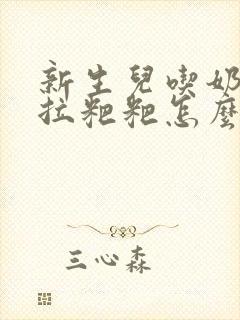 新生兒喫奶
拉粑粑怎麼
三心森